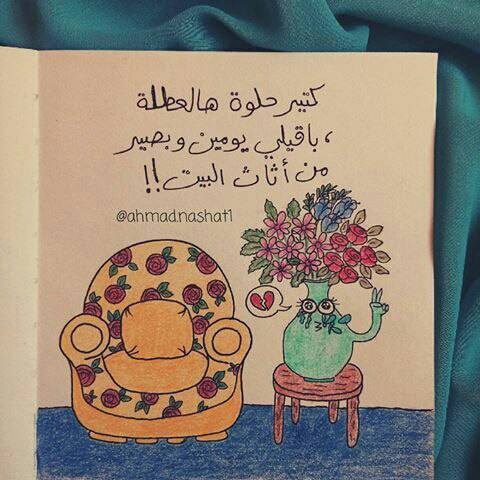 كتير حلوة هالعطلة
، باقيلي يومين وبصير
من أثاث البيت !!
@ahmad.nashat1